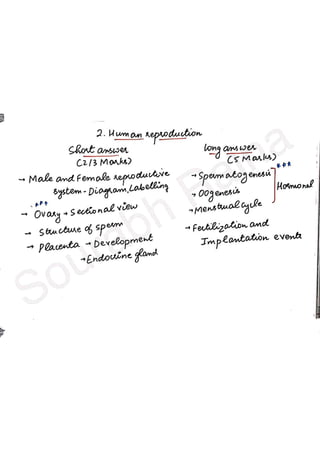 2. Human reproduction
Short answer
(2/3 Marks)
→ Male and Female reproductive
system - Diagram, Labelling
***
→ Ovary → Sectional view
→ Structure of sperm
→ Placenta → Development
→ Endocrine gland
Long answer
(5 Marks)
***
→ Spermatogenesis
→ Oogenesis
Hormonal
→ Menstrual cycle
→ Fertilization and
Implantation events